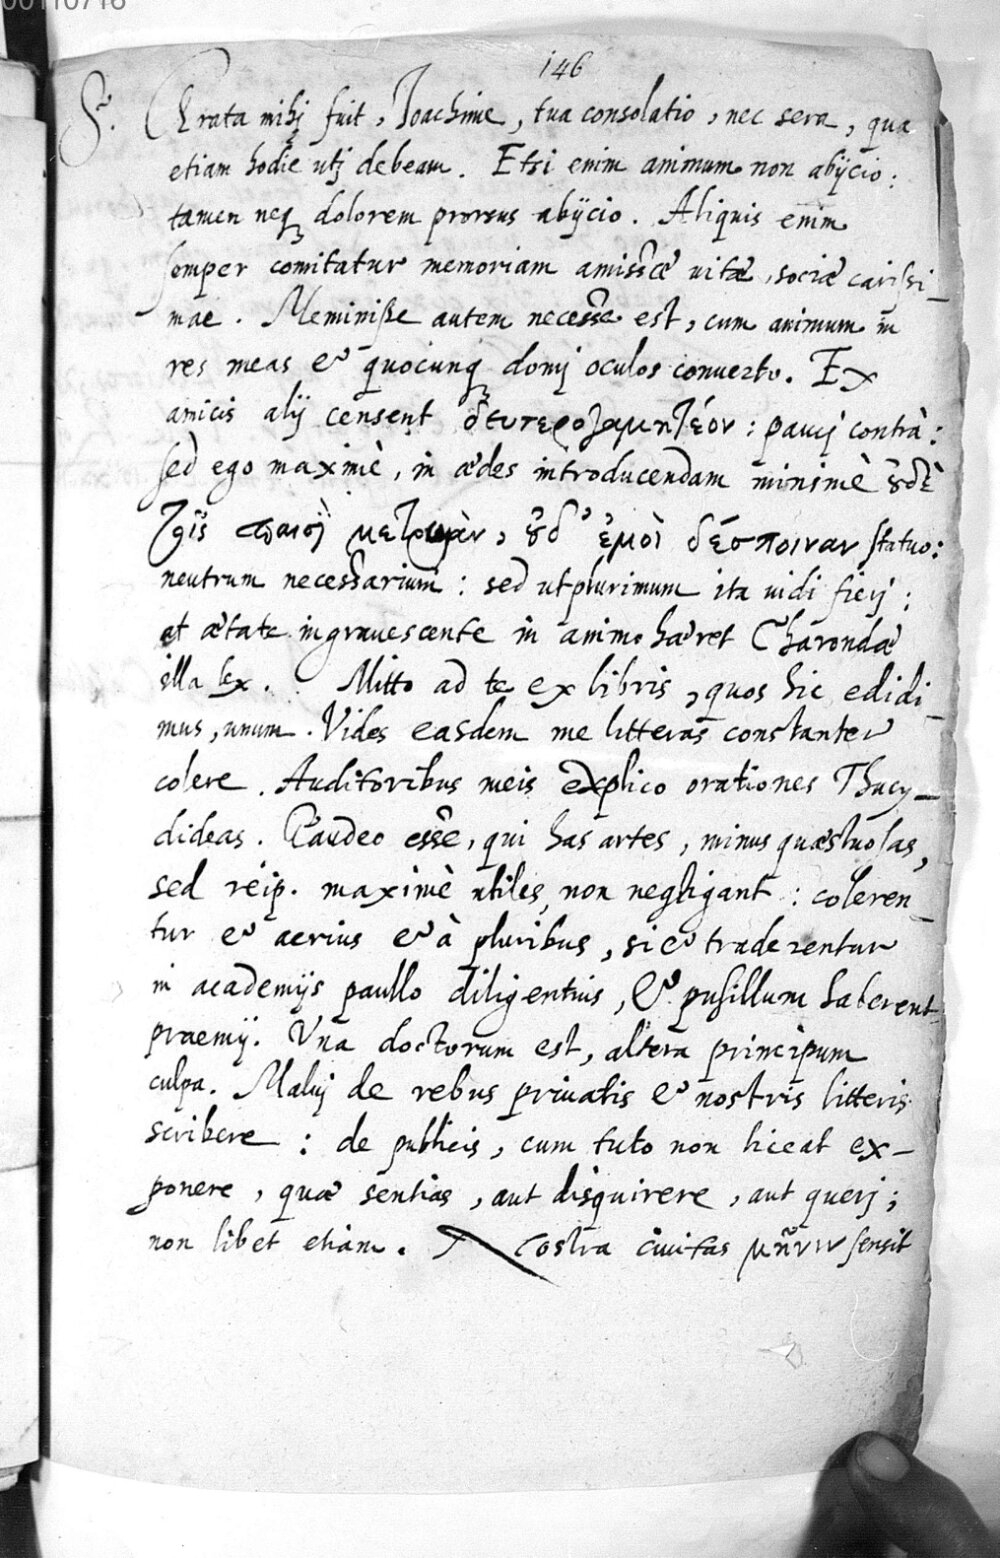 00110716
146
S. Grata mihj fuit, Joachime, tua consolatio, nec sera, qua
etiam hodie utj debeam. Etsi enim animum non abijcio:
tamen neq dolorem prorsus abijcio. Aliquis enim
semper comitatur memoriam amissæ uitæ, sociæ carissi-
mae. Meminisse autem necesse est, cum animum in
res meas & quocunq domj oculos conuerto. Ex
amicis alij censent δευτερογαμητέον: paucj contrà:
sed ego maximè, in ædes introducendam minimè οὐδὲ
τοῖς παισὶ μητρυιὰν, οὐδ' ἐμοὶ δέσποιναν statuo:
neutrum necessarium: sed ut plurimum ita uidi fierj:
et ætate ingrauescente in animo hæret Charondæ
illa lex. Mitto ad te ex libris, quos hic edidi-
mus, unum. Vides easdem me litteras constanter
colere. Auditoribus meis explico orationes Thucy-
dideas. Gaudeo esse, qui has artes, minus quæstuosas,
sed reip. maximè utiles, non negligant: coleren-
tur & acrius & à pluribus, si & traderentur
in academijs paullo diligentius, & pusillum haberent
praemij. Vna doctorum est, altera principum
culpa. Maluj de rebus priuatis & nostris litteris
scribere: de publicis, cum tuto non liceat ex-
ponere, quæ sentias, aut disquirere, aut querj;
non libet etiam. Nostra ciuitas μῆνιν sensit